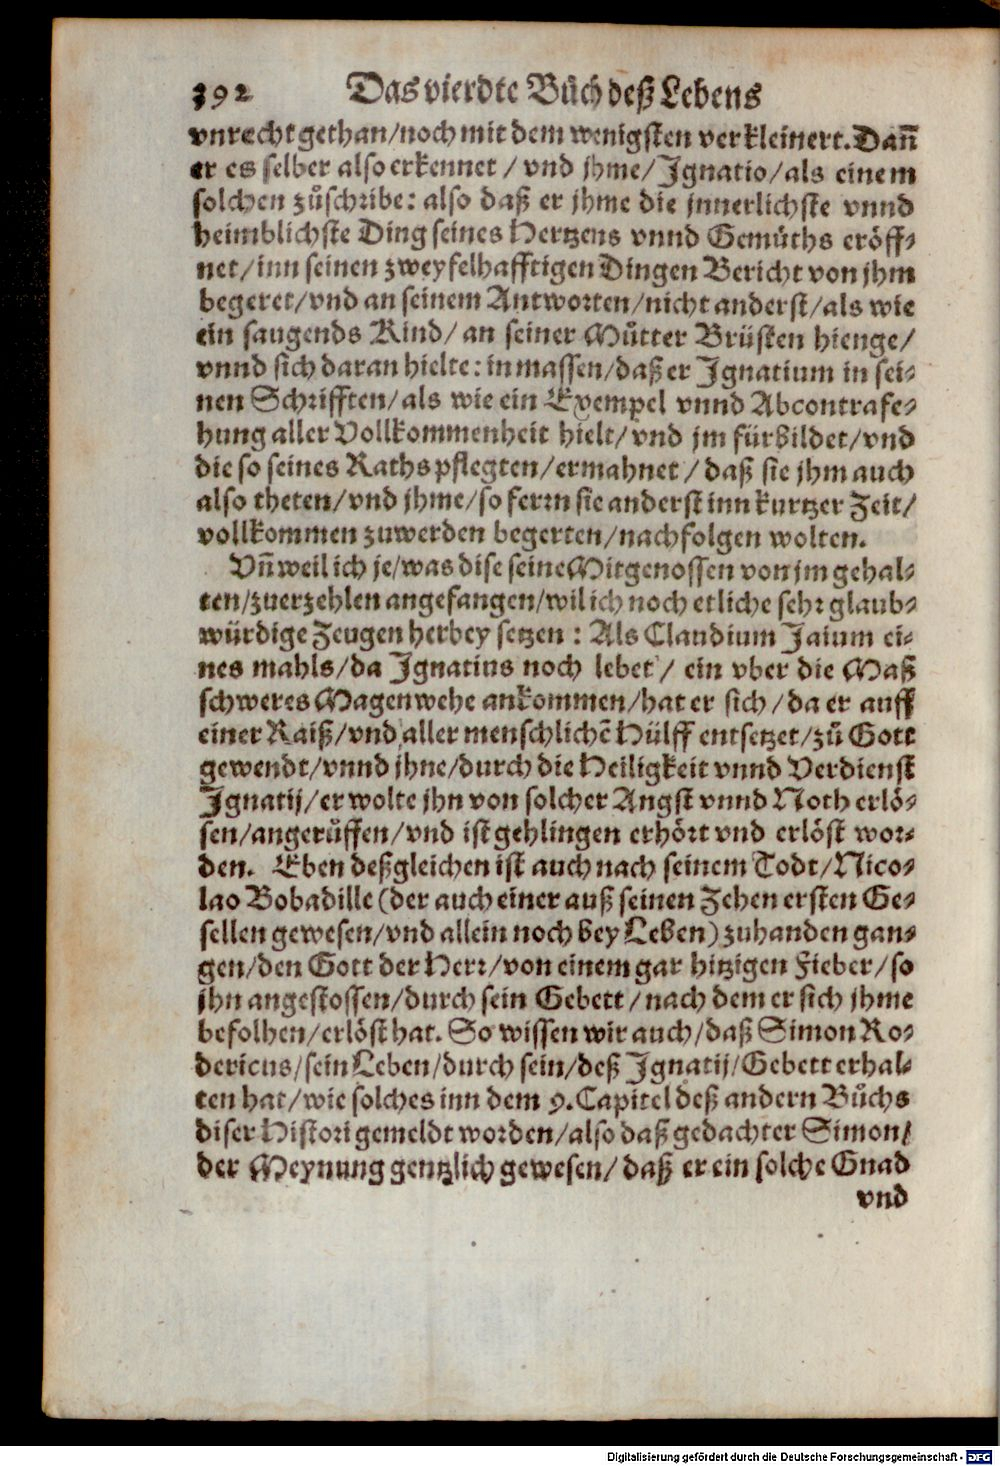 392 Das vierdte Bůch deß Lebens
vnrecht gethan/noch mit dem wenigsten verkleinert. Dañ
er es selber also erkennet / vnd jhme/ Ignatio/ als einem
solchen zůschribe: also daß er jhme die jnnerlichste vnnd
heimblichste Ding seines Hertzens vnnd Gemüths eröff-
net/ inn seinen zweyfelhafftigen Dingen Bericht von jhm
begeret/ vnd an seinem Antworten/ nicht anderst/ als wie
ein saugends Kind/ an seiner Můtter Brüsten hienge/
vnnd sich daran hielte: inmassen/ daß er Ignatium in sei-
nen Schrifften/ als wie ein Exempel vnnd Abcontrafe-
hung aller Vollkommenheit hielt/ vnd jm fürbildet/ vnd
die so seines Raths pflegten/ ermahnet / daß sie jhm auch
also theten/ vnd jhme/ so ferrn sie anderst inn kurtzer Zeit/
vollkommen zuwerden begerten/ nachfolgen wolten.
Vñ weil ich je/ was dise seine Mitgenossen von jm gehal-
ten/ zuerzehlen angefangen/ wil ich noch etliche sehr glaub-
würdige Zeugen herbey setzen : Als Claudium Jaium ei-
nes mahls/ da Ignatius noch lebet / ein vber die Maß
schweres Magenwehe ankommen/ hat er sich / da er auff
einer Raiß/ vnd aller menschlichẽ Hülff entsetzet/ zů Gott
gewendt/ vnnd jhne/ durch die Heiligkeit vnnd Verdienst
Ignatij/ er wolte jhn von solcher Angst vnnd Noth erlö-
sen/ angerůffen/ vnd ist gehlingen erhört vnd erlöst wor-
den. Eben deßgleichen ist auch nach seinem Todt/ Nico-
lao Bobadille (der auch einer auß seinen Zehen ersten Ge-
sellen gewesen/ vnd allein noch bey Leben) zuhanden gan-
gen/ den Gott der Herr/ von einem gar hitzigen Fieber/ so
jhn angestossen/ durch sein Gebett / nach dem er sich jhme
befolhen/ erlöst hat. So wissen wir auch/ daß Simon Ro-
dericus/ sein Leben/ durch sein/ deß Ignatij/ Gebett erhal-
ten hat/ wie solches inn dem 9. Capitel deß andern Bůchs
diser Histori gemeldt worden/ also daß gedachter Simon/
der Meynung gentzlich gewesen/ daß er ein solche Gnad
vnd
Digitalisierung gefördert durch die Deutsche Forschungsgemeinschaft - DFG